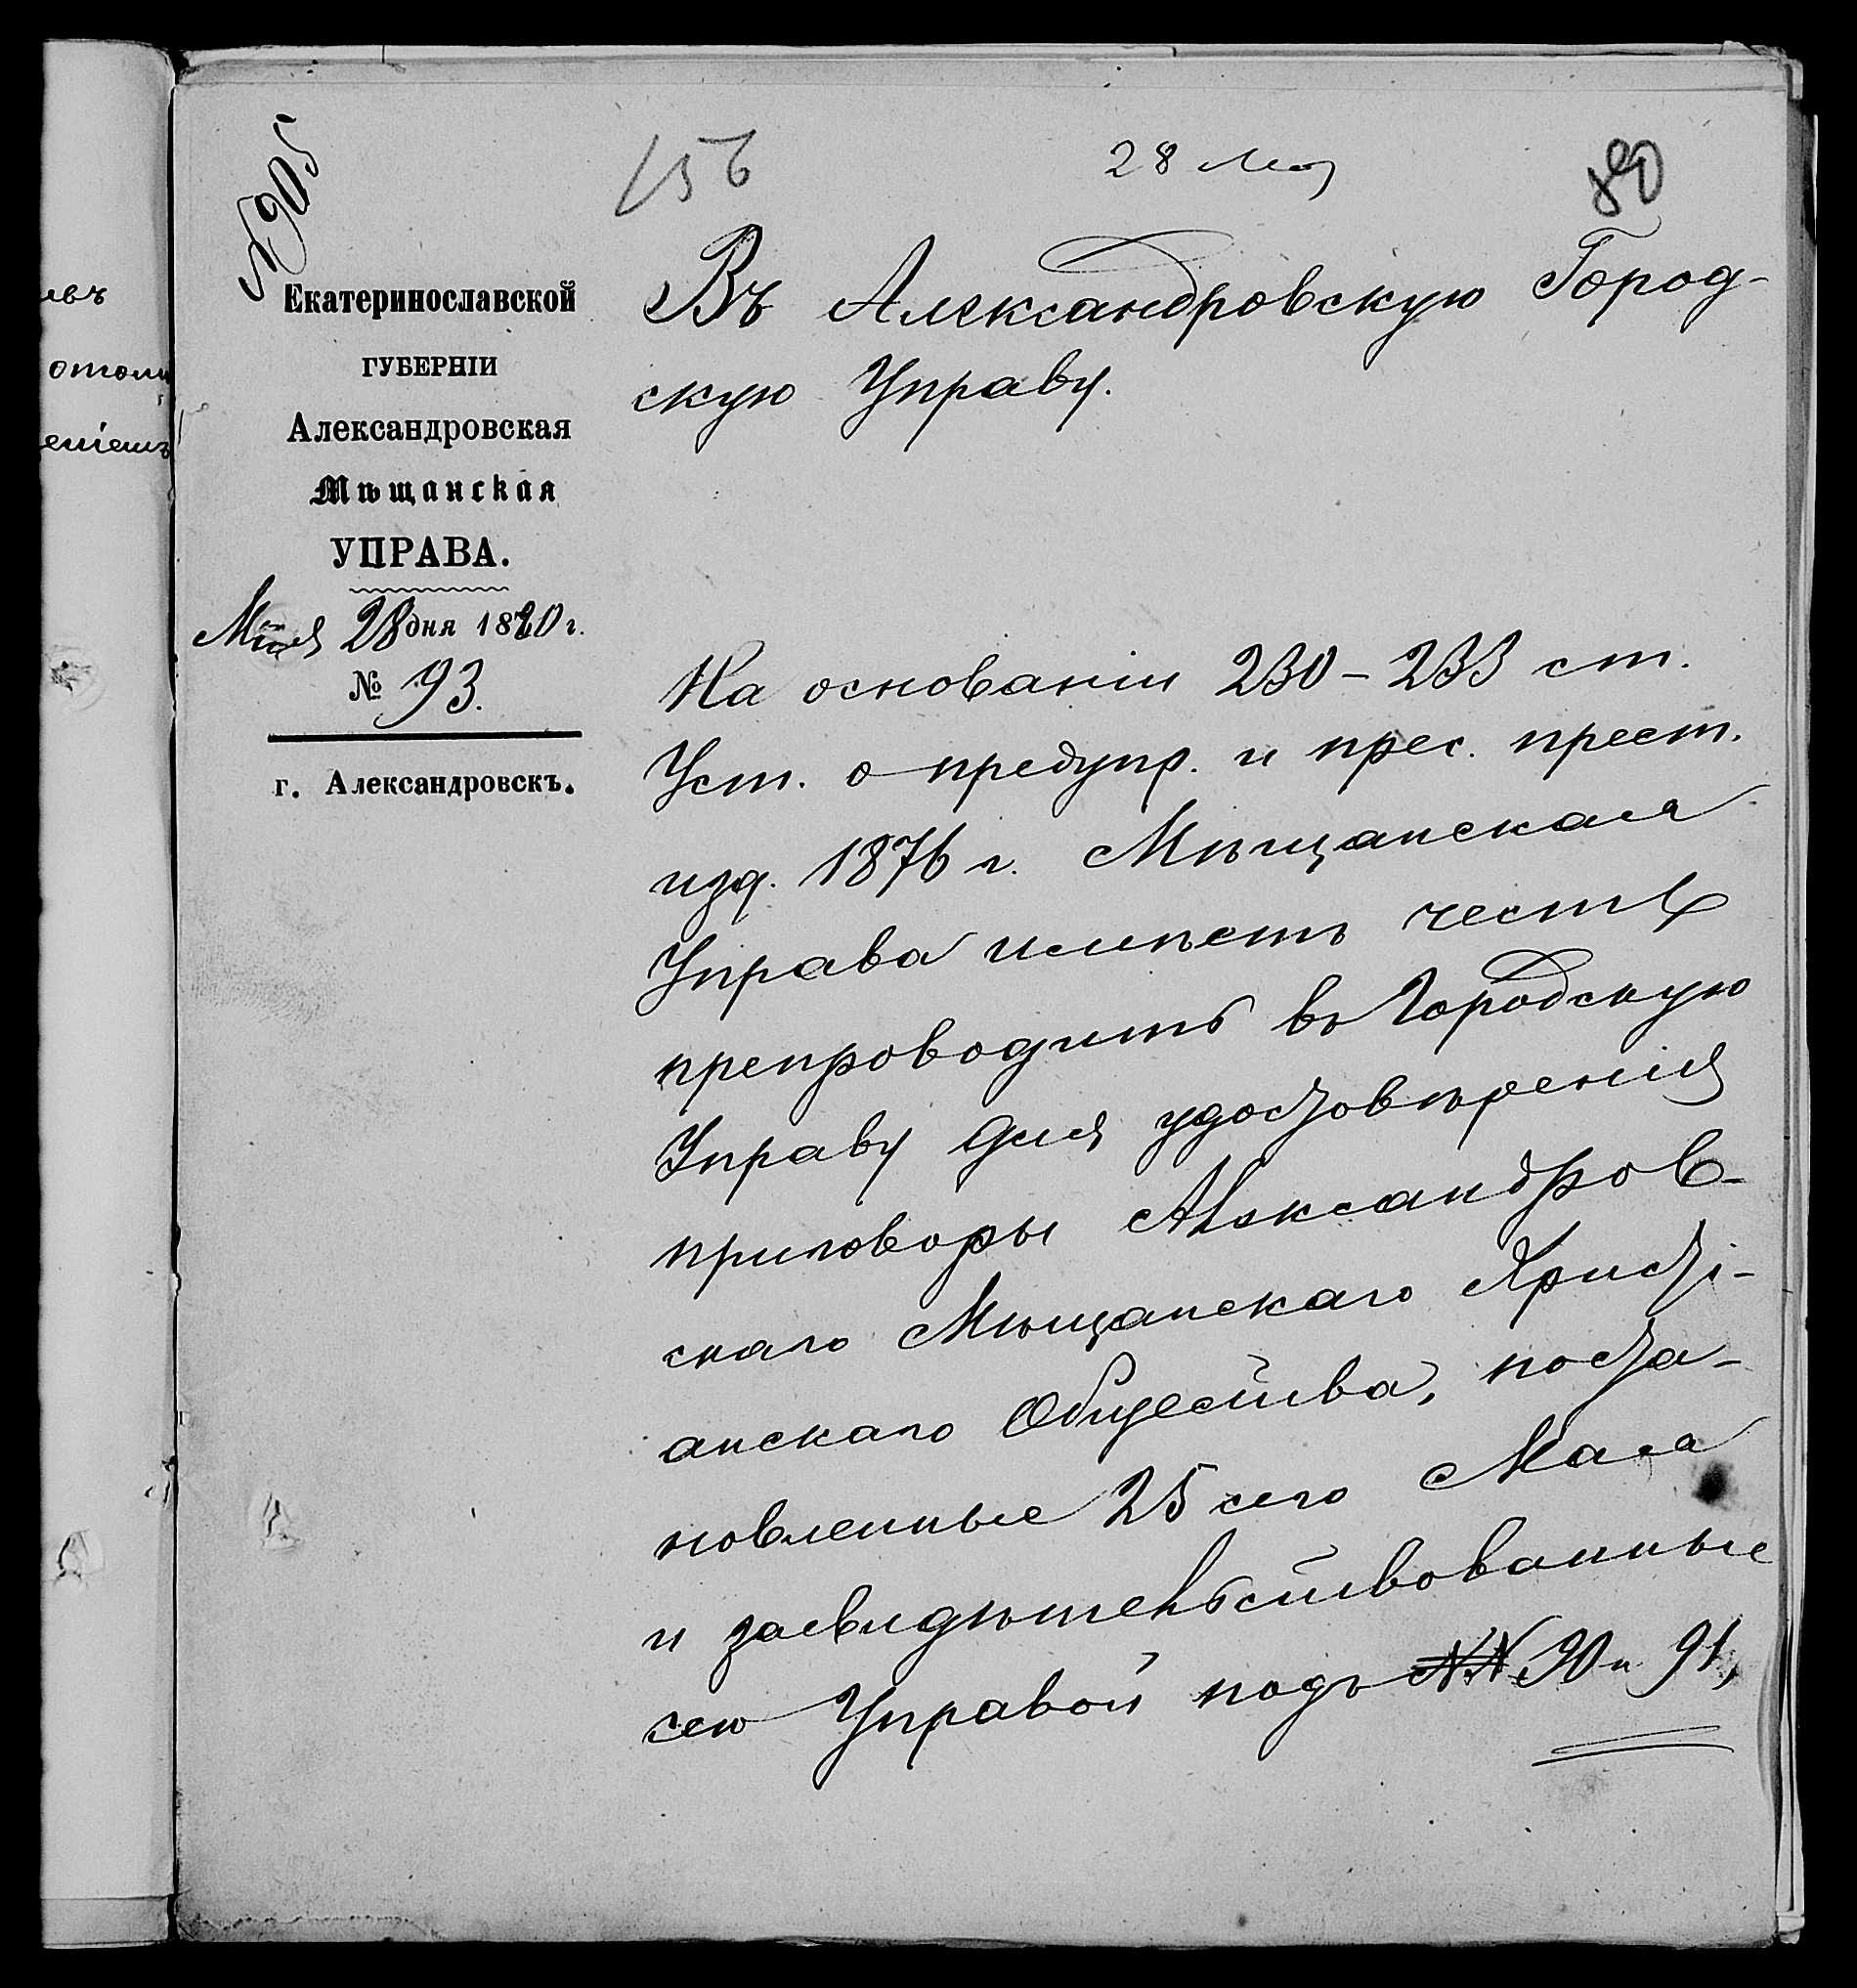 № 905
156
28 Мая
80
Екатеринославской
ГУБЕРНІИ
Александровская
Мѣщанская
УПРАВА.
Мая 28 дня 1880 г.
№ 93.
г. Александровскъ.
Въ Александровскую Город-
скую Управу.
На основаніи 230-233 ст.
Уст. о предупр. и прес. прест.
изд. 1876 г. Мѣщанская
Управа имѣетъ честь
препроводить въ Городскую
Управу для удостовѣренія
приговоры Александров-
скаго Мѣщанскаго Христі-
анскаго Общества, поста-
новленные 25 сего Мая
и засвидѣтельствованные
сею Управой подъ №№ 90 и 91,
евъ
еніемъ